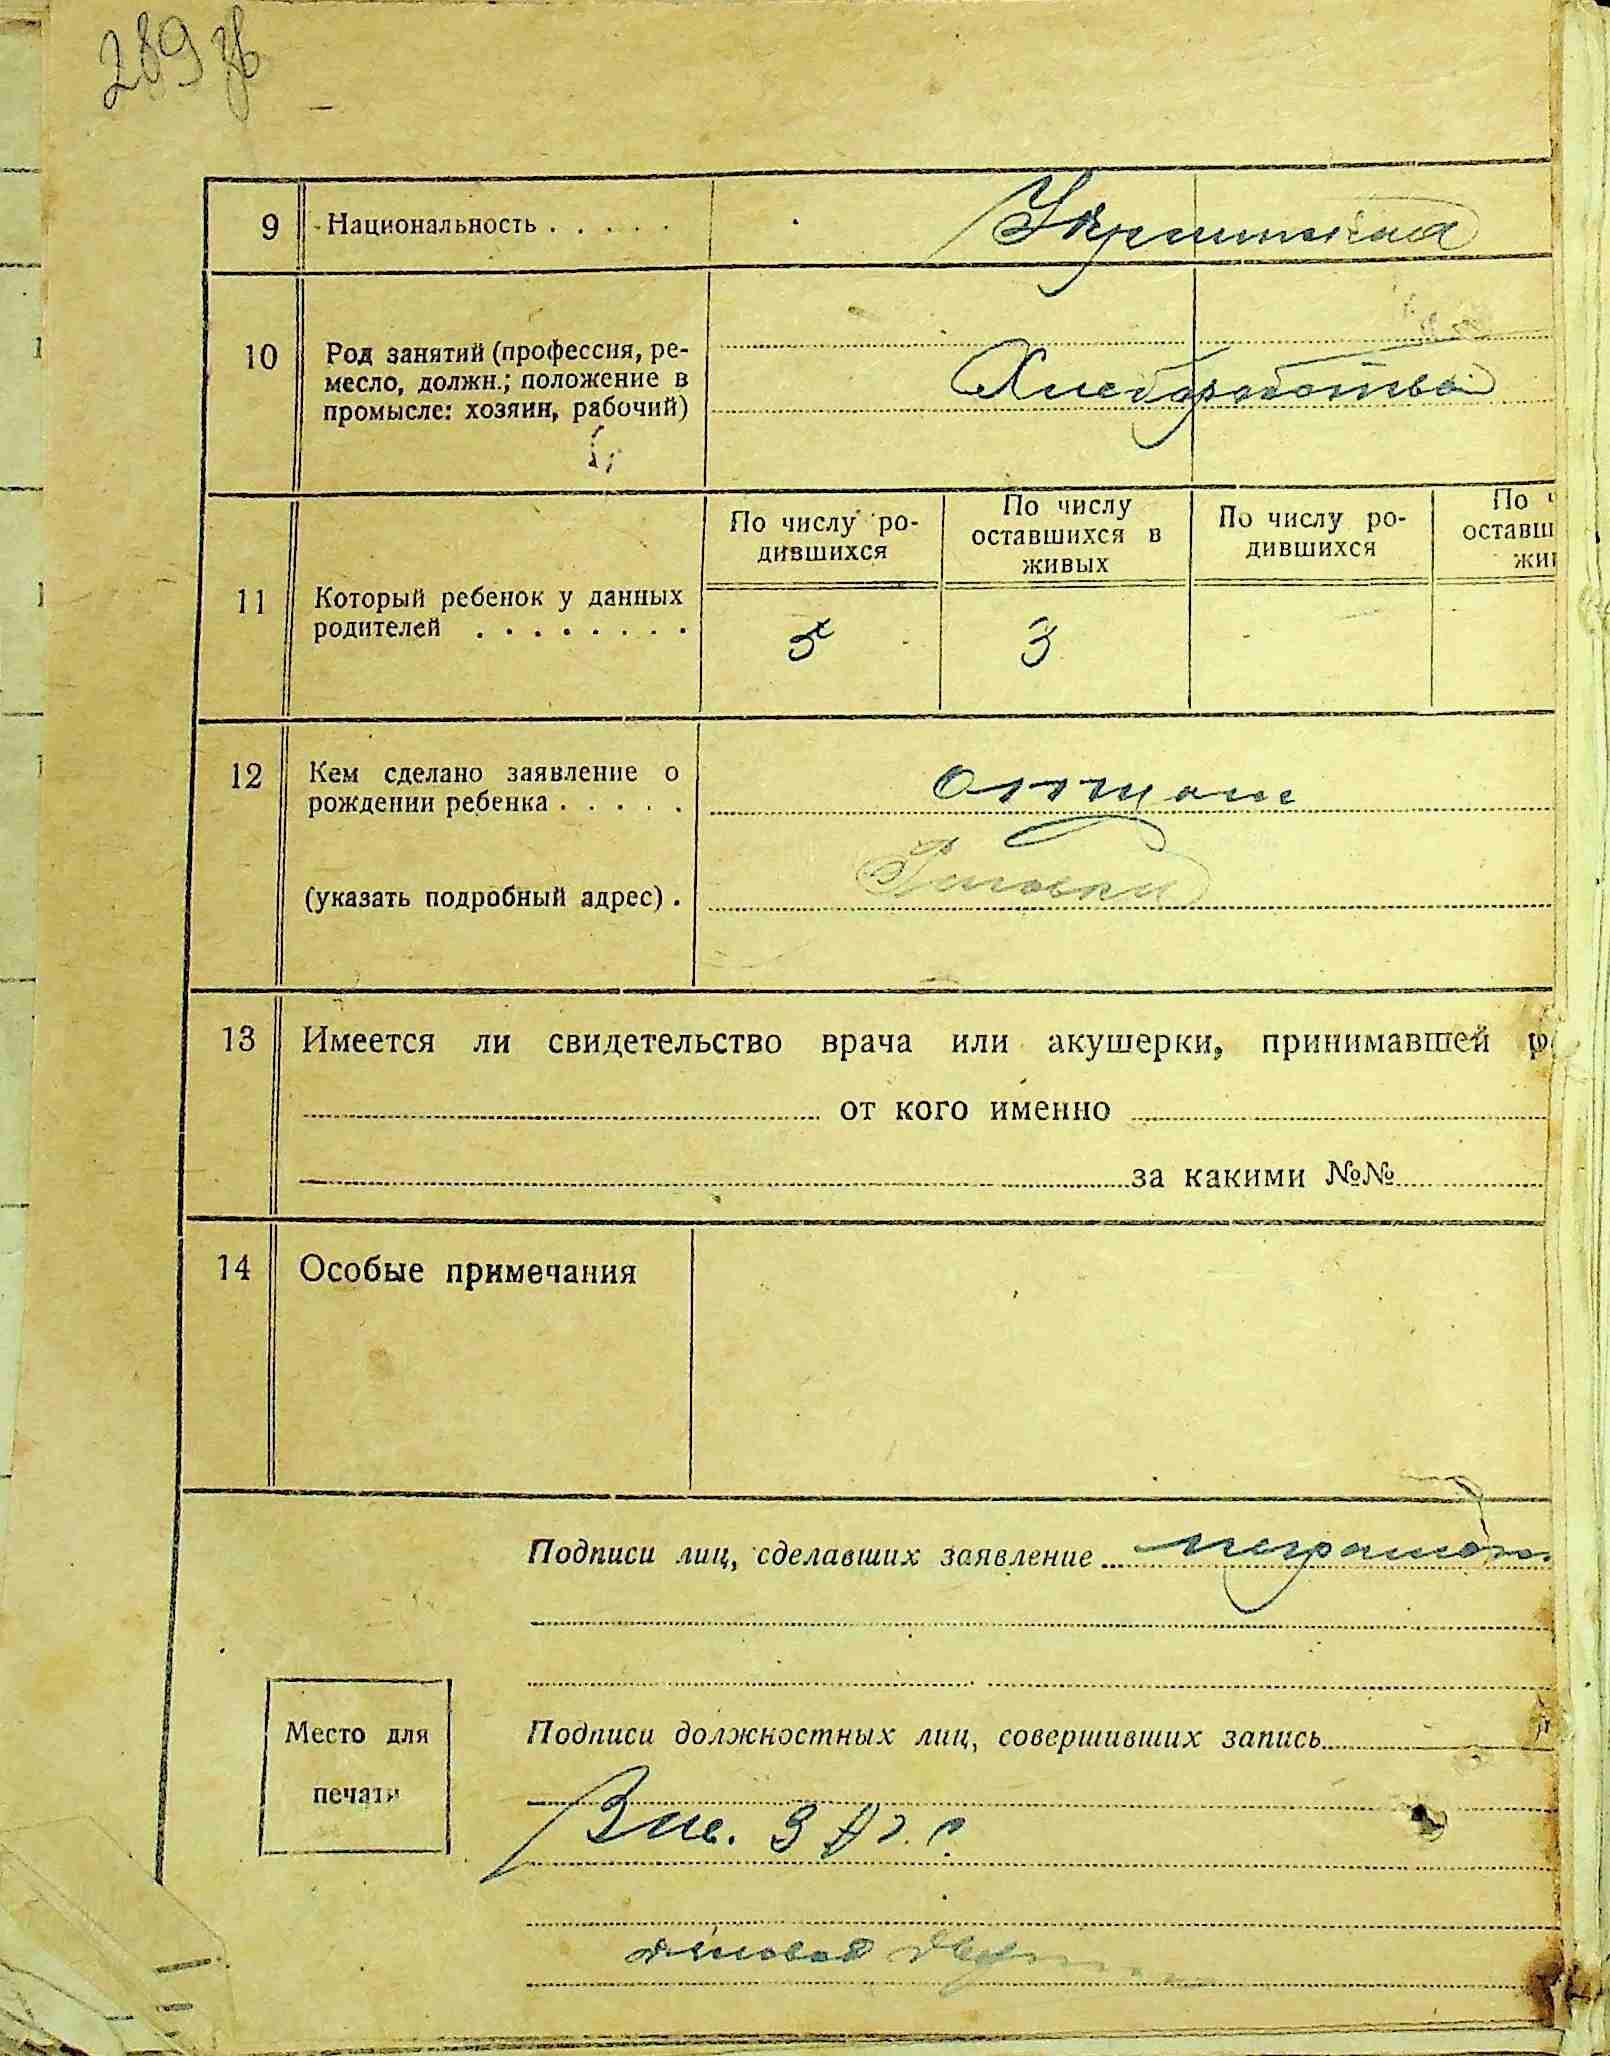 289 зв
9 Национальность . . . . .
Украинская
10 Род занятий (профессия, ре-
месло, должн.; положение в
промысле: хозяин, рабочий)
Хлеборобство
11 Который ребенок у данных
родителей . . . . . . . .
По числу ро-
дившихся
По числу
оставшихся в
живых
По числу ро-
дившихся
По ч
оставш
жи
3
12 Кем сделано заявление о
рождении ребенка . . . . .
отцом
(указать подробный адрес) .
13 Имеется ли свидетельство врача или акушерки, принимавшей р
от кого именно
за какими №№
14 Особые примечания
Подписи лиц, сделавших заявление неграмотн
Место для
печати
Подписи должностных лиц, совершивших запись
деловод